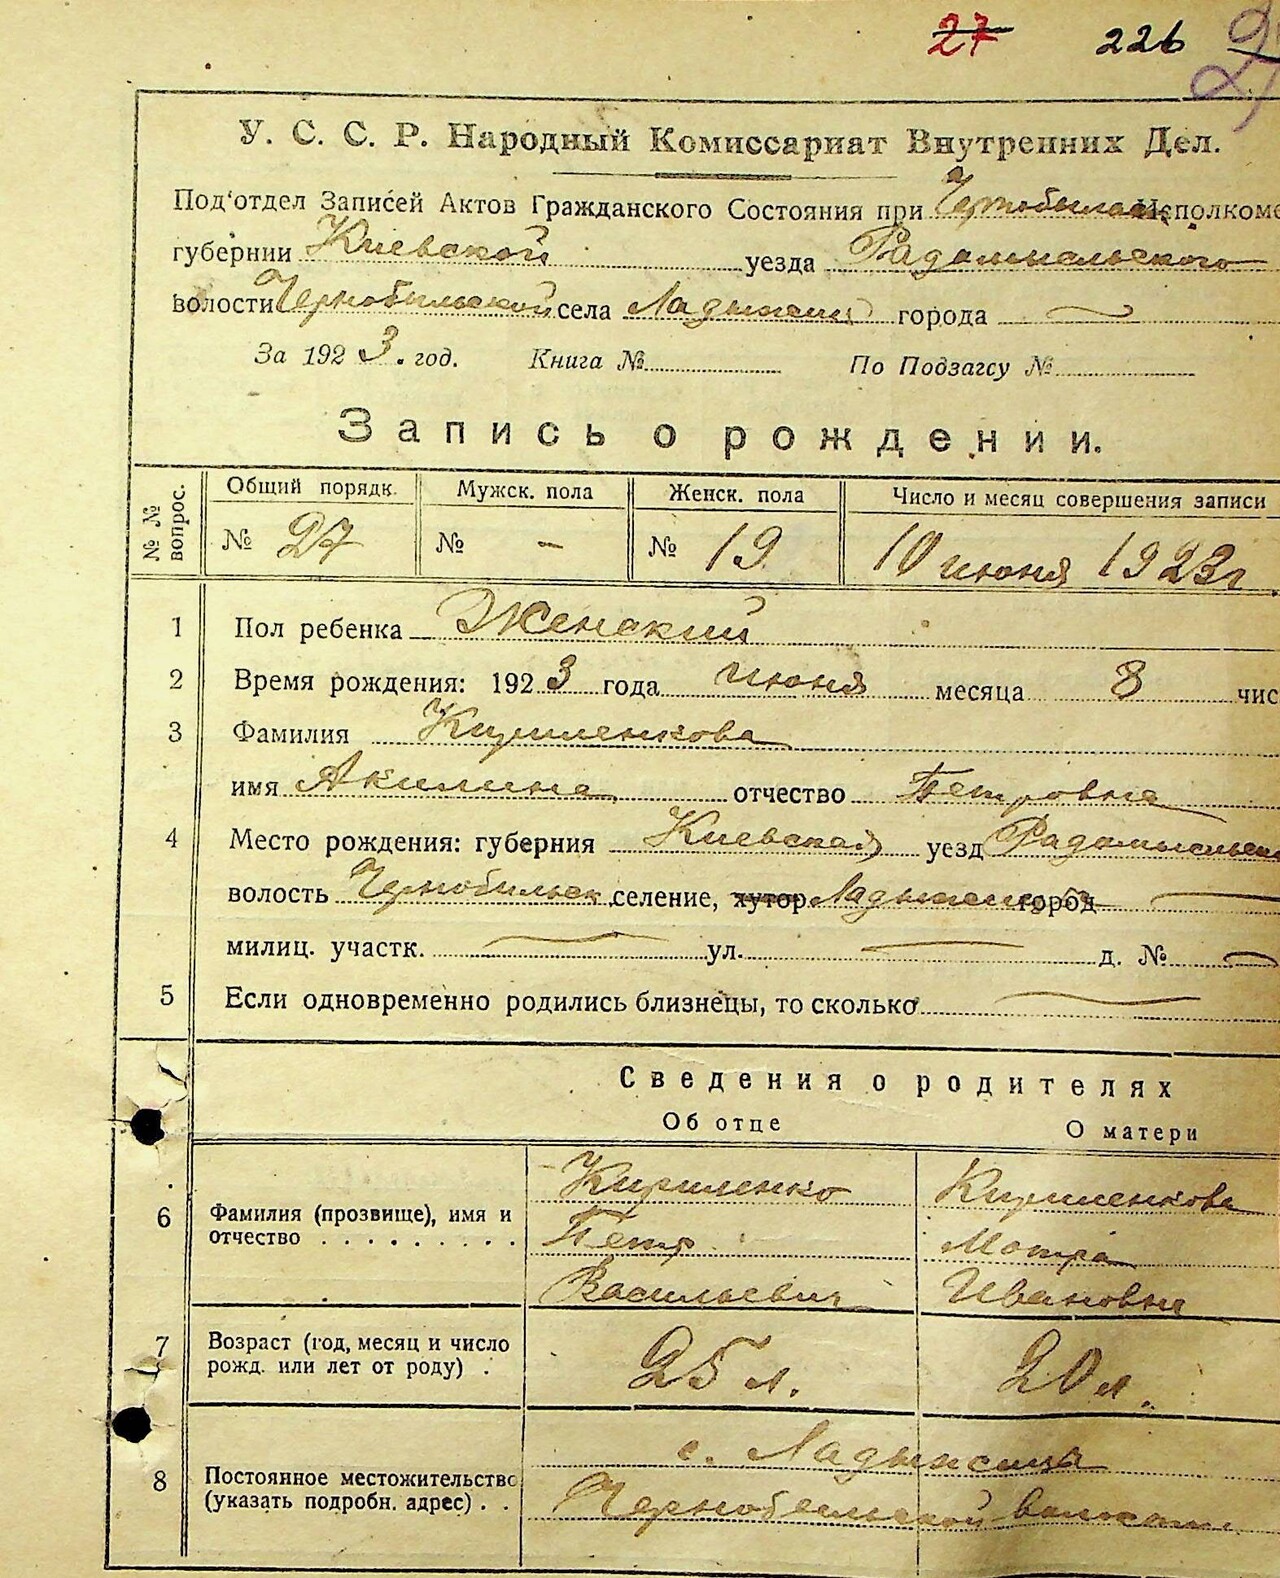 27 226
У. С. С. Р. Народный Комиссариат Внутренних Дел.
Под'отдел Записей Актов Гражданского Состояния при Исполкоме
губернии Киевской уезда Радомысльского
волости Чернобыльской села Ладыжичи города
За 1923. год. Книга № По Подзагсу №
Запись о рождении.
№ № вопрос. Общий порядк. Мужск. пола Женск. пола Число и месяц совершения записи
№ 27 № - № 19 10 июня 1923г
1 Пол ребенка Женский
2 Время рождения: 1923 года июня месяца 8 чис
3 Фамилия Кириленкова
имя Акилина отчество Петровна
4 Место рождения: губерния Киевская уезд Радомысльск
волость Чернобыльск селение, хутор Ладыжичи город
милиц. участк. ул. д. №
5 Если одновременно родились близнецы, то сколько
Сведения о родителях
Об отце О матери
6 Фамилия (прозвище), имя и отчество Кириленко Петр Васильевич Кириленкова Мотра Ивановна
7 Возраст (год, месяц и число рожд. или лет от роду) 25 л. 20 л.
8 Постоянное местожительство (указать подробн. адрес) с. Ладыжичи
Чернобыльской волости